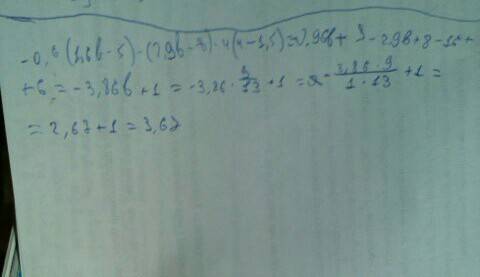 -0,6(1,6b-5)-(2,9b-8)-4(4-1,5)=-0,96b+3-2,9b+8-16+
+6=-3,86b+1=-3,86·9/13+1=-3,86·9/1·13+1=
=2,67+1=3,67